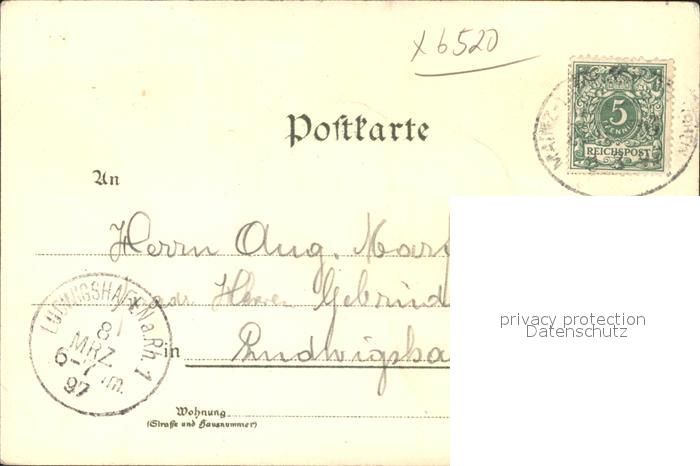 x 6520
5
PFENNIG
REICHSPOST
MAINZ-
Postkarte
An
Herrn Aug.
Herren Gebrüd
in Ludwigsha
LUDWIGSHAFEN a. Rh. 1
8
MRZ
6-7
97
Wohnung
(Straße und Hausnummer)
privacy protection
Datenschutz